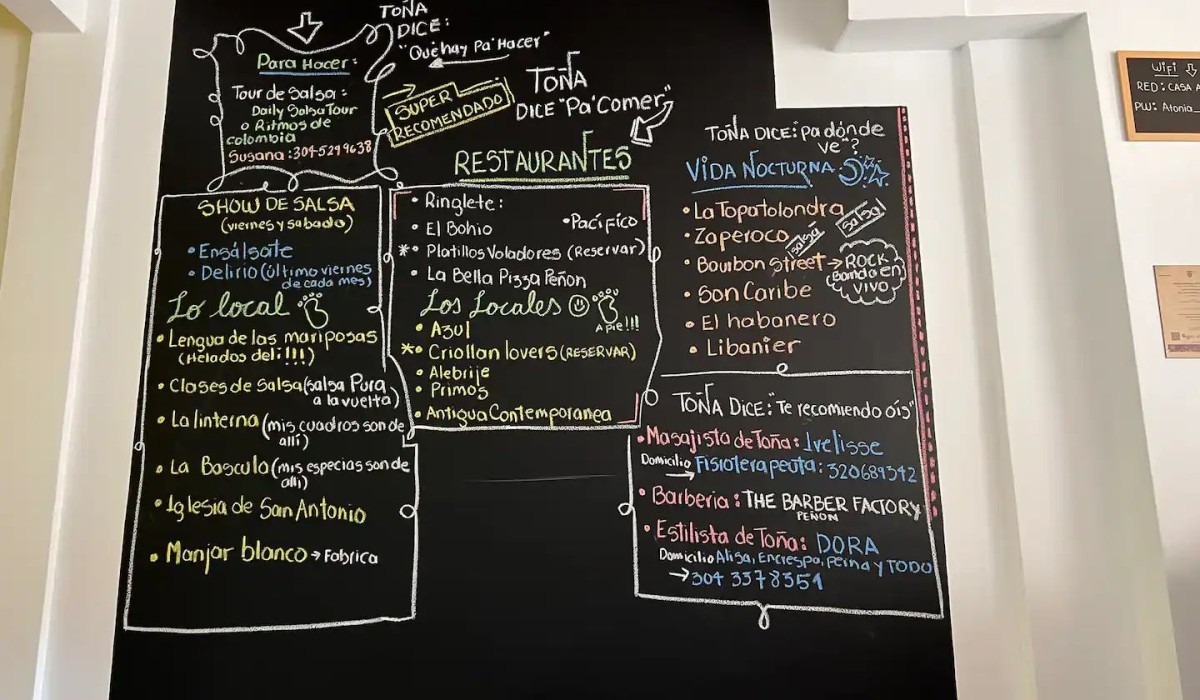 TOÑA
DICE:
"Qué hay Pa' Hacer"
Para Hacer:
Tour de Salsa:
Daily Salsa Tour
o Ritmos de
colombia
Susana: 304-5299638
SUPER
RECOMENDADO
TOÑA
DICE "Pa' Comer"
RESTAURANTES
• Ringlete:
• El Bohio
• Pacífico
* • Platillos Voladores (Reservar)
• La Bella Pizza Peñon
Los Locales
A pie!!!
• Azul
* • Criollan lovers (RESERVAR)
• Alebrije
• Primos
• Antigua Contemporanea
SHOW DE SALSA
(viernes y sabado)
• Ensálsate
• Delirio (último viernes
de cada mes)
Lo local
• Lengua de las mariposas
(Helados deli!!!)
• Clases de Salsa (salsa Pura
a la vuelta)
• La linterna (mis cuadros son de
allí)
• La Bascula (mis especias son de
alli)
• Iglesia de San Antonio
• Manjar blanco → Fabrica
TOÑA DICE: "pa dónde
ve"?
VIDA NOCTURNA
• La Topatolondra
Salsa!
• Zaperoco
salsa
• Bourbon Street → ROCK
Banda en
VIVO
• Son Caribe
• El habanero
• Libanier
TOÑA DICE: "Te recomiendo óis"
• Masajista de Toña: Ivelisse
Domicilio Fisioterapeuta: 320689342
→
• Barberia: THE BARBER FACTORY
PEÑON
• Estilista de Toña: DORA
Domicilio Alisa, Encrespa, peina y TODO
→ 304 3378351
WiFi
RED: CASA A
PW: Atonia_